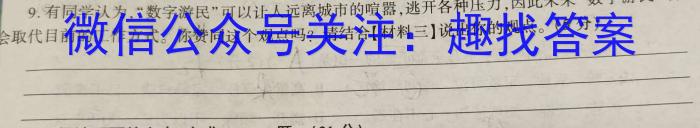 9. 有同学认为,“数字游民”可以让人远离城市的喧嚣,逃开各种压力,因此未来“数字游民”
会取代目前的工作方式。你赞同这个观点吗?请结合【材料三】说
微信公众号关注:趣找答案